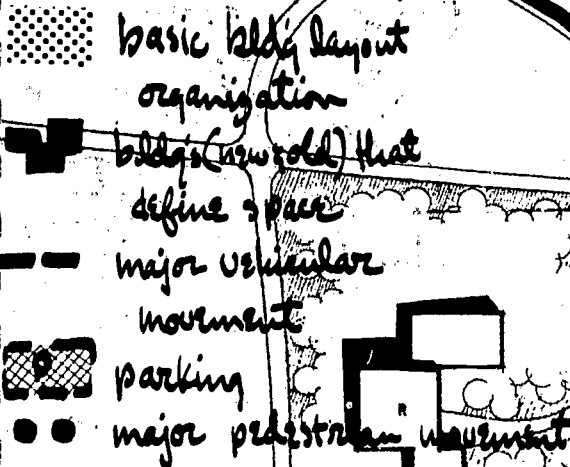 basic bldg layout
organization
bldgs(new+old) that
define space
major vehicular
movement
parking
major pedestrian movement
R